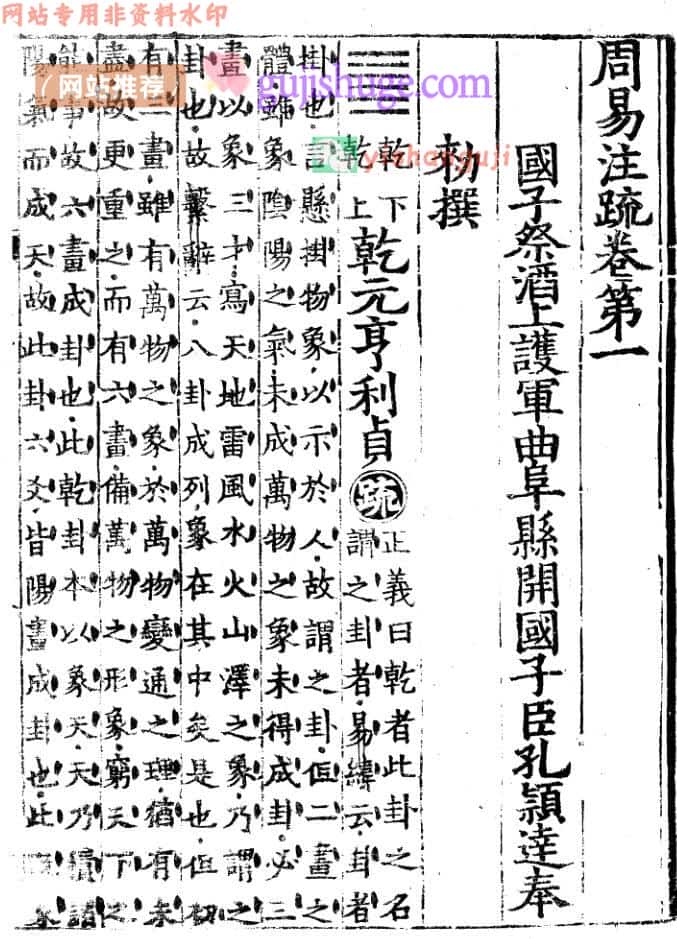 网站专用非资料水印
周易注疏卷第一
國子祭酒上護軍曲阜縣開國子臣孔穎達奉
勑撰
䷀乾下乾上乾元亨利貞疏正義曰乾者此卦之名
謂之卦者易緯云卦者
掛也言懸掛物象以示於人故謂之卦但二畫之
體雖象陰陽之氣未成萬物之象未得成卦必三
畫以象三才寫天地雷風水火山澤之象乃謂之
卦也故繫辭云八卦成列象在其中矣是也但初
有三畫雖有萬物之象於萬物變通之理猶有未
盡故更重之而有六畫備萬物之形象窮天下之
能事故六畫成卦也此乾卦本以象天天乃積諸
陽氣而成天故此卦六爻皆陽畫成卦也此既象
(网站推荐)
gujishuge.com
yishanguji